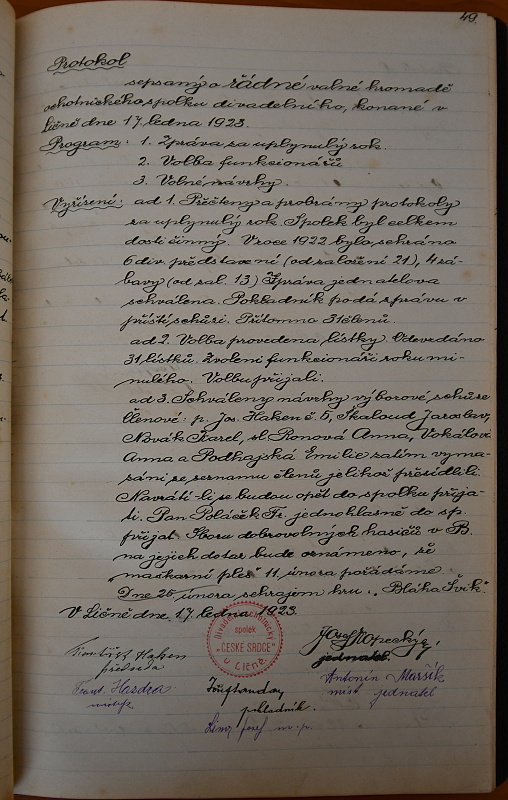 49.
Protokol
sepsaný o řádné valné hromadě
ochotnického spolku divadelního, konané v
Líčně dne 17. ledna 1923.
Program: 1. Zpráva za uplynulý rok.
2. Volba funkcionářů
3. Volné návrhy.
Vyřízení: ad 1. Přečteny a probrány protokoly
za uplynulý rok. Spolek byl celkem
dosti činný. V roce 1922 bylo sehráno
6 div. představení (od založení 21), 4 zá-
bavy (od zal. 13) Zpráva jednatelova
schválena. Pokladník podá zprávu v
příští schůzi. Přítomno 31 členů.
ad 2. Volba provedena lístky. Odevzdáno
31 lístků. Zvoleni funkcionáři roku mi-
nulého. Volbu přijali.
ad 3. Schváleny návrhy výborové schůze
Členové: p. Jos. Haken č. 5, Skaloud Jaroslav,
Novák Karel, sl. Ronová Anna, Vokálová
Anna a Podhajská Emilie zatím vyma-
záni ze seznamu členů jelikož přesídlili.
Navrátí-li se budou opět do spolku přija-
ti. Pan Bláček Fr. jednohlasně do sp.
přijat. Sboru dobrovolných hasičů v B.
na jejich dotaz bude oznámeno, že
„maškarní ples" 11. února pořádáme.
Dne 25 února sehrajem hru: „Bláha Švik"
V Líčně dne 17. ledna 1923.
Divadelní ochotnický
spolek
„ČESKÉ SRDCE"
v Líčně.
František Haken
předseda
Josef Kopecký,
jednatel.
Frant. Hezdra
Antonín Maršík
míst jednatel
pokladník.
Josef